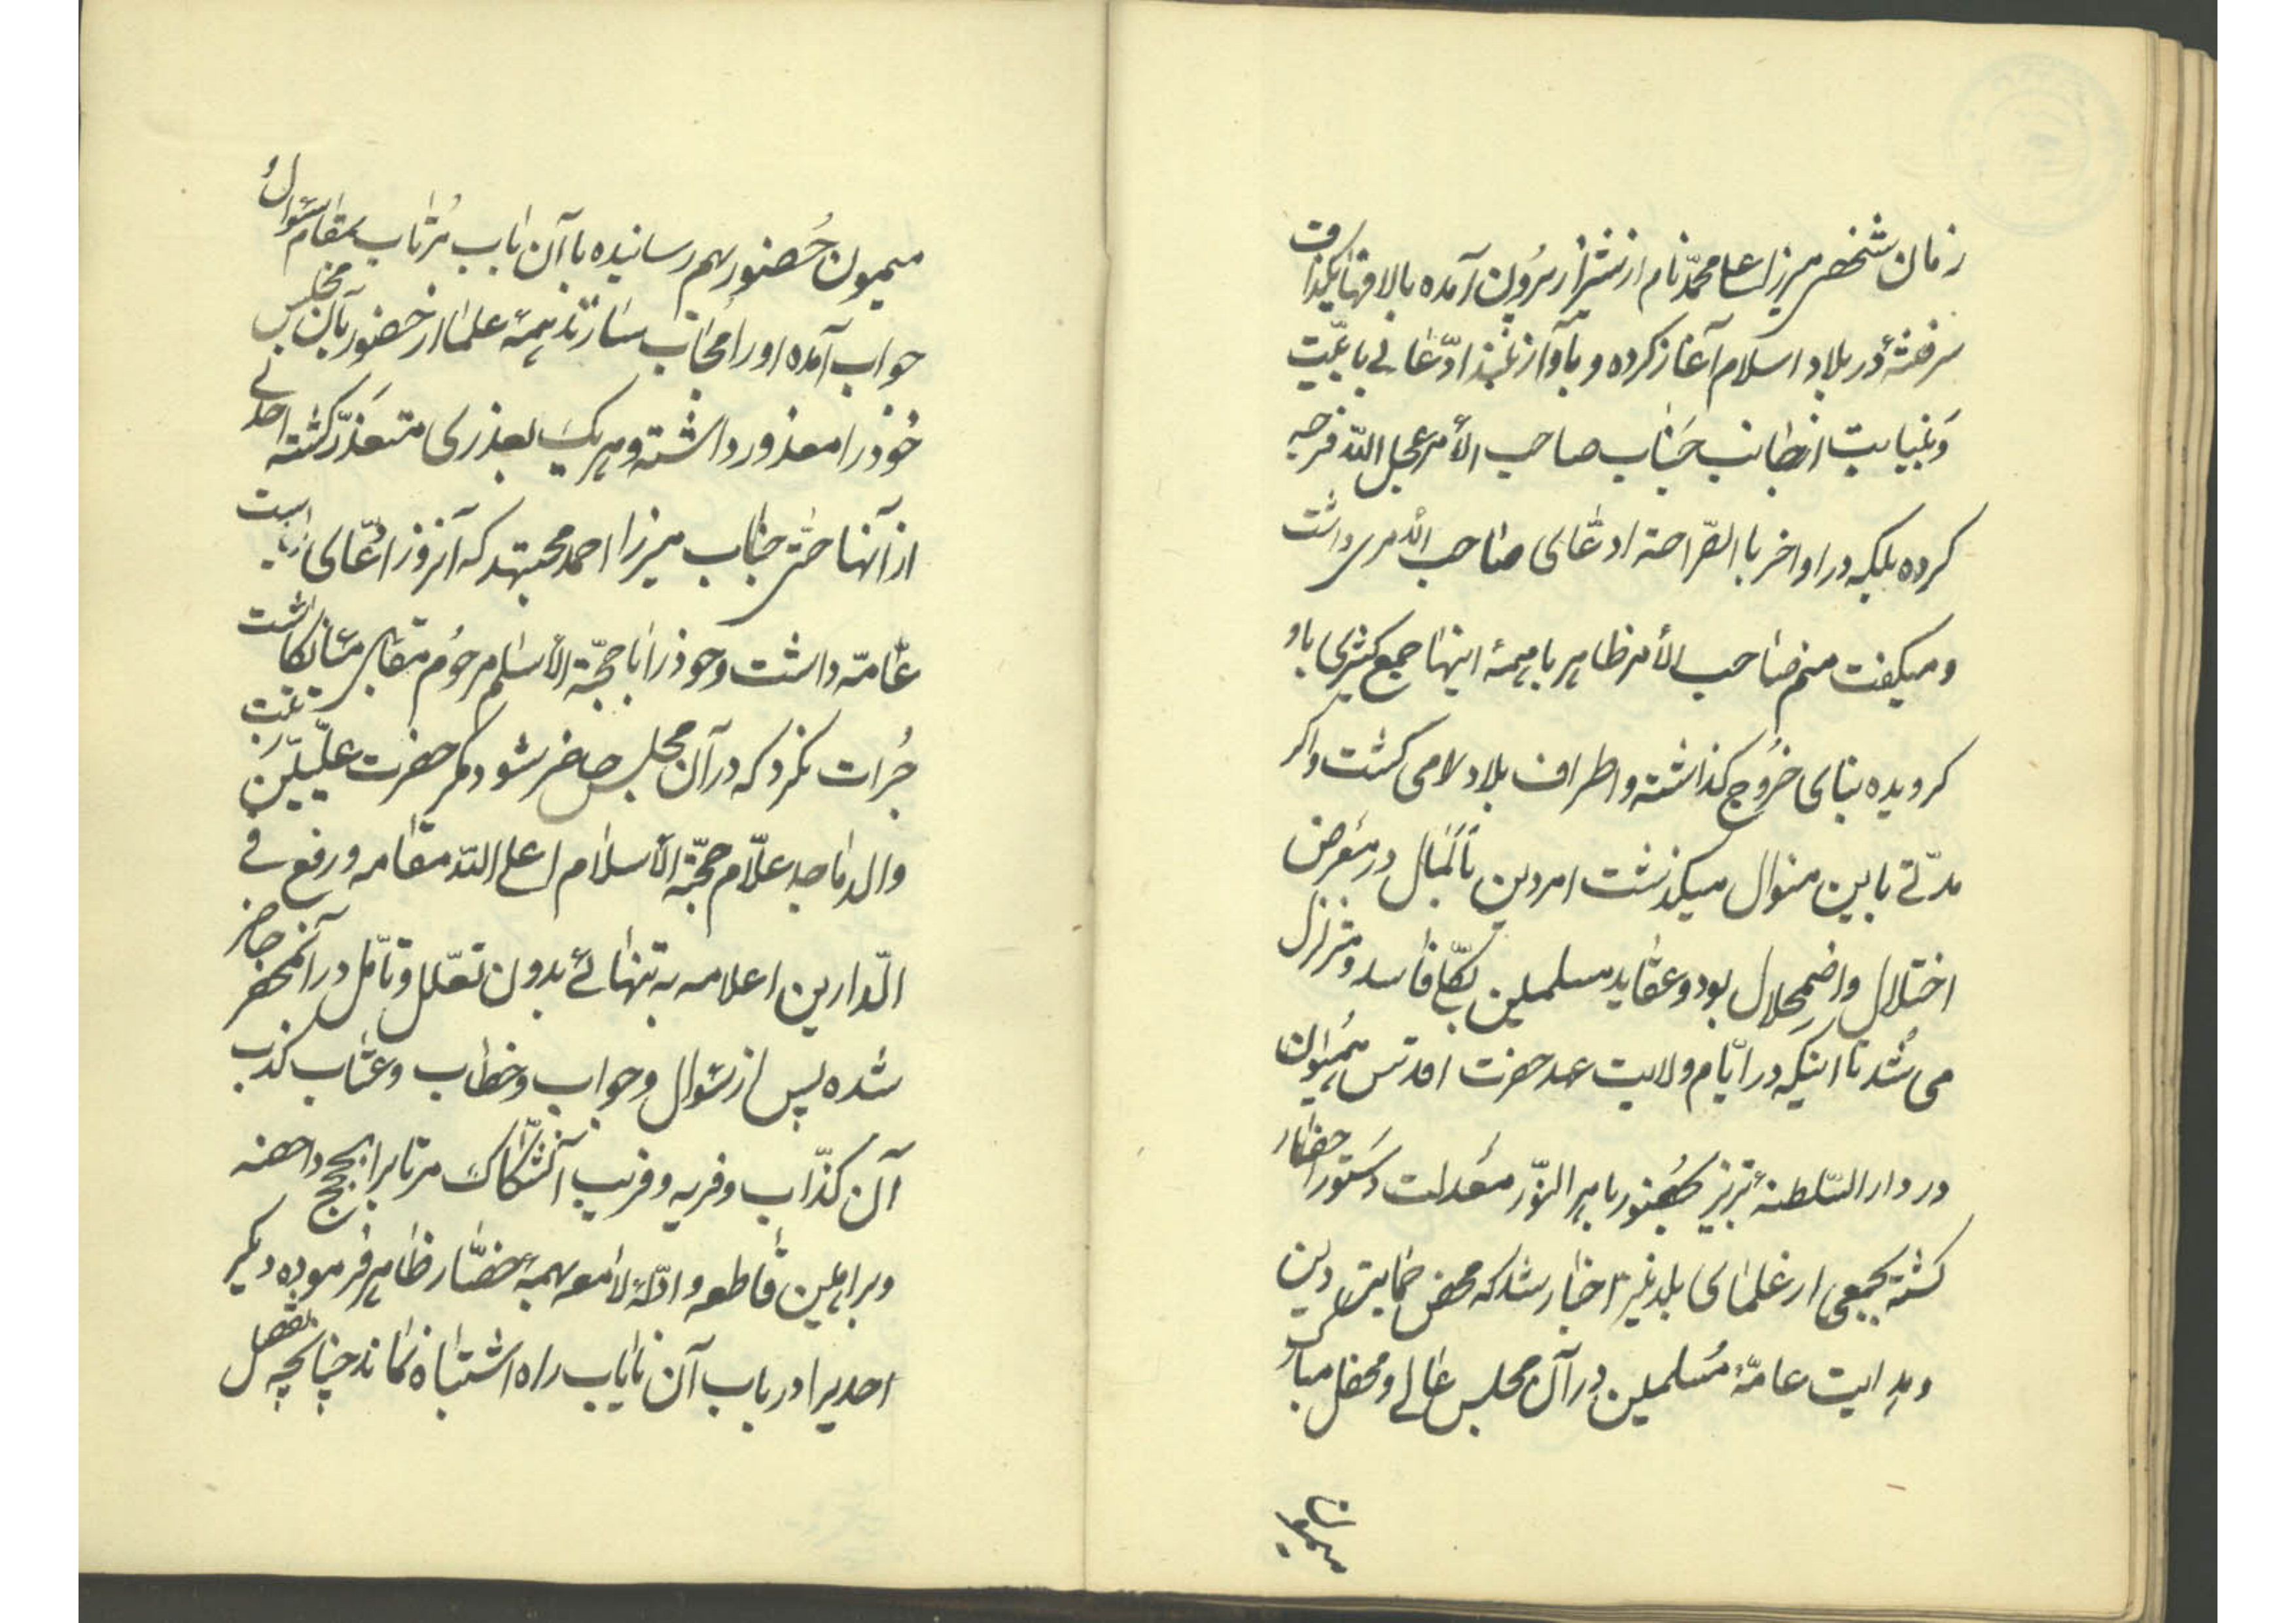 زمان شخصی میرزا علی محمّد نام از شیراز بیرون آمده بالافتراق
سر فتنهٔ در بلاد اسلام آغاز کرده و بآواز بلند ادّعای بابیّت
و نیابت از جانب جناب صاحب الأمر عجل اللّه فرجه
کرده بلکه در اواخر با الصّراحة ادعای صاحب الأمری داشت
و میگفت منم صاحب الأمر ظاهر با همهٔ اینها جمع کثیری باو
کرویده بنای خروج کذاشته و اطراف بلاد لامی کشت و اکر
مدّتی باین منوال میکذشت امر دین بالمآل در معرض
اختلال و اضمحلال بود و عقاید مسلمین بکلّی فاسد و متزلزل
می شد تا اینکه در ایّام ولایت عهد حضرت اقدس همیون
در دار السّلطنهٔ تبریز بحضور باهر النّور معدلت دستور احضار
کشته بجمعی از علمای بلد نیز اخبار شد که محض حمایت دین
و هدایت عامّهٔ مسلمین در آن مجلس عالی و محفل مبارک
میمون حضور بهم رسانیده با آن باب مرتاب بمقام سؤال و
جواب آمده اورا مجاب سازند همهٔ علما از حضور بآن مجلس
خود را معذور داشته و هر یک بعذری متعذّر کشته احدی
از آنها حتّی جناب میرزا احمد مجتهد که آنروز ادّعای ریاست
عامّه داشت و خود را با حجّة الأسلام مرحوم مقابل می‌انکاشت
جرات نکرد که در آن مجلس حاضر شود مکر حضرت علّیّین رتبت
والد ماجد علّام حجّة الأسلام اعلی اللّه مقامه و رفع فی
الدّارین اعلامه به تنهائی بدون تعلّل و تأمّل در آنمحضر حاضر
شده پس از سؤال و جواب و خطاب و عتاب کذب
آن کذّاب و فریه و فریب آنشکّاک مرتاب را بحجج واضحه
و براهین قاطعه و ادلّهٔ لامعه بهمهٔ حضّار ظاهر فرموده دیکر
احدیرا در باب آن نایاب راه اشتباه نماند چنانچه تفصیل